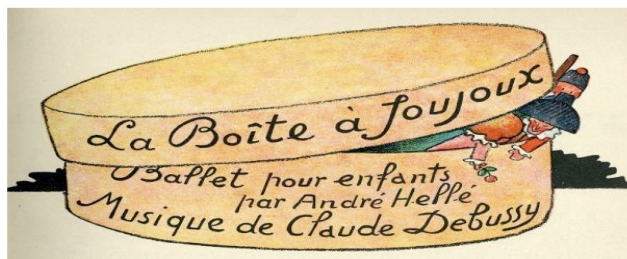 La Boîte à Joujoux
Ballet pour enfants
par André Hellé
Musique de Claude Debussy